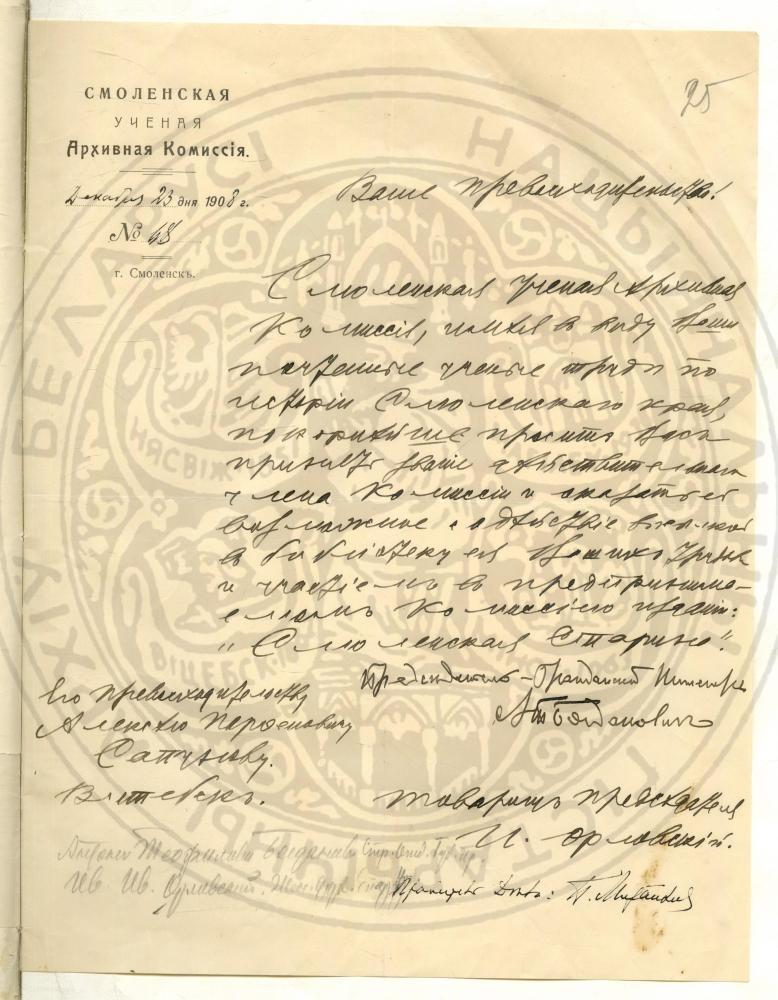 25
СМОЛЕНСКАЯ
УЧЕНАЯ
Архивная Комиссія.
Декабря 23 дня 1908 г.
№ 68
г. Смоленскъ.
Ваше превосходительство!
Смоленская ученая Архивная
Комиссія, имѣя въ виду Ваши
почтенные ученые труды по
исторіи Смоленскаго края,
покорнѣйше проситъ Васъ
принять званіе дѣйствительнаго
члена Комиссіи и оказать ей
возможное содѣйствіе высылкой
въ библіотеку ея Вашихъ трудовъ
и участіемъ въ предпринима-
емомъ Комиссіею изданіи:
"Смоленская Старина".
Предсѣдатель - Гражданскій Инженеръ
Богдановичъ
Его превосходительству
Алексѣю Парѳеновичу
Сапунову.
Витебскъ.
Товарищъ предсѣдателя
И. Орловскій.
Антоній Теофиловичъ Богданов.
Ив. Ив. Орловскій.
Правитель Дѣлъ:
НАЦЫЯНАЛЬНЫ
ГІСТАРЫЧНЫ
АРХІЎ БЕЛАРУСІ
НЯСВІЖ
ВІЦЕБСК